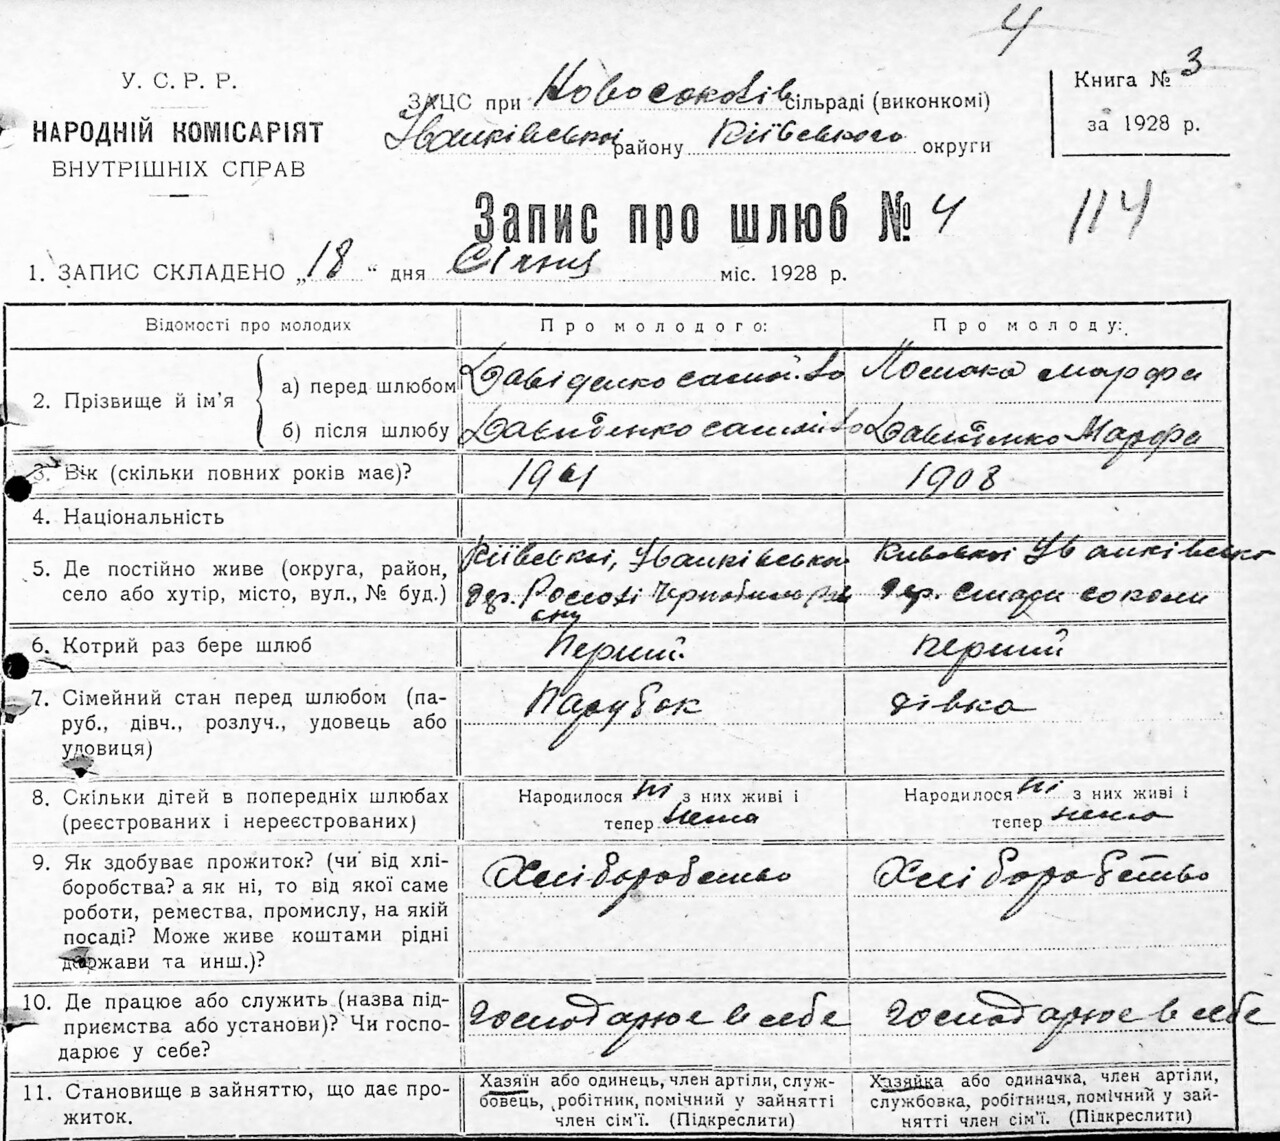 4
У. С. Р. Р.
НАРОДНІЙ КОМІСАРІЯТ
ВНУТРІШНІХ СПРАВ
ЗАЦС при Новосоколів сільраді (виконкомі)
Іванківської району Київського округи
Книга № 3
за 1928 р.
Запис про шлюб № 4
114
1. ЗАПИС СКЛАДЕНО „18“ дня Січня міс. 1928 р.
Відомості про молодих
Про молодого:
Про молоду:
2. Прізвище й ім’я
а) перед шлюбом
Давіденко
Марфа
б) після шлюбу
Давиденко
Давиденко Марфа
3. Вік (скільки повних років має)?
1908
4. Національність
5. Де постійно живе (округа, район,
село або хутір, місто, вул., № буд.)
Київської, Іванківської
Київської Іванківсько
дер.
дер. Стари соколи
6. Котрий раз бере шлюб
Перший
перший
7. Сімейний стан перед шлюбом (па-
руб., дівч., розлуч., удовець або
удовиця)
Парубок
дівка
8. Скільки дітей в попередніх шлюбах
(реєстрованих і нереєстрованих)
Народилося ні з них живі і
тепер нема
Народилося ні з них живі і
тепер нема
9. Як здобуває прожиток? (чи від хлі-
боробства? а як ні, то від якої саме
роботи, ремества, промислу, на якій
посаді? Може живе коштами рідні
держави та инш.)?
Хліборобство
Хліборобство
10. Де працює або служить (назва під-
приємства або установи)? Чи госпо-
дарює у себе?
Господарює в себе
Господарює в себе
11. Становище в зайняттю, що дає про-
житок.
Хазяїн або одинець, член артілі, служ-
бовець, робітник, помічний у зайнятті
член сім’ї. (Підкреслити)
Хазяйка або одиначка, член артіли,
службовка, робітниця, помічний у зай-
нятті член сім’ї. (Підкреслити)